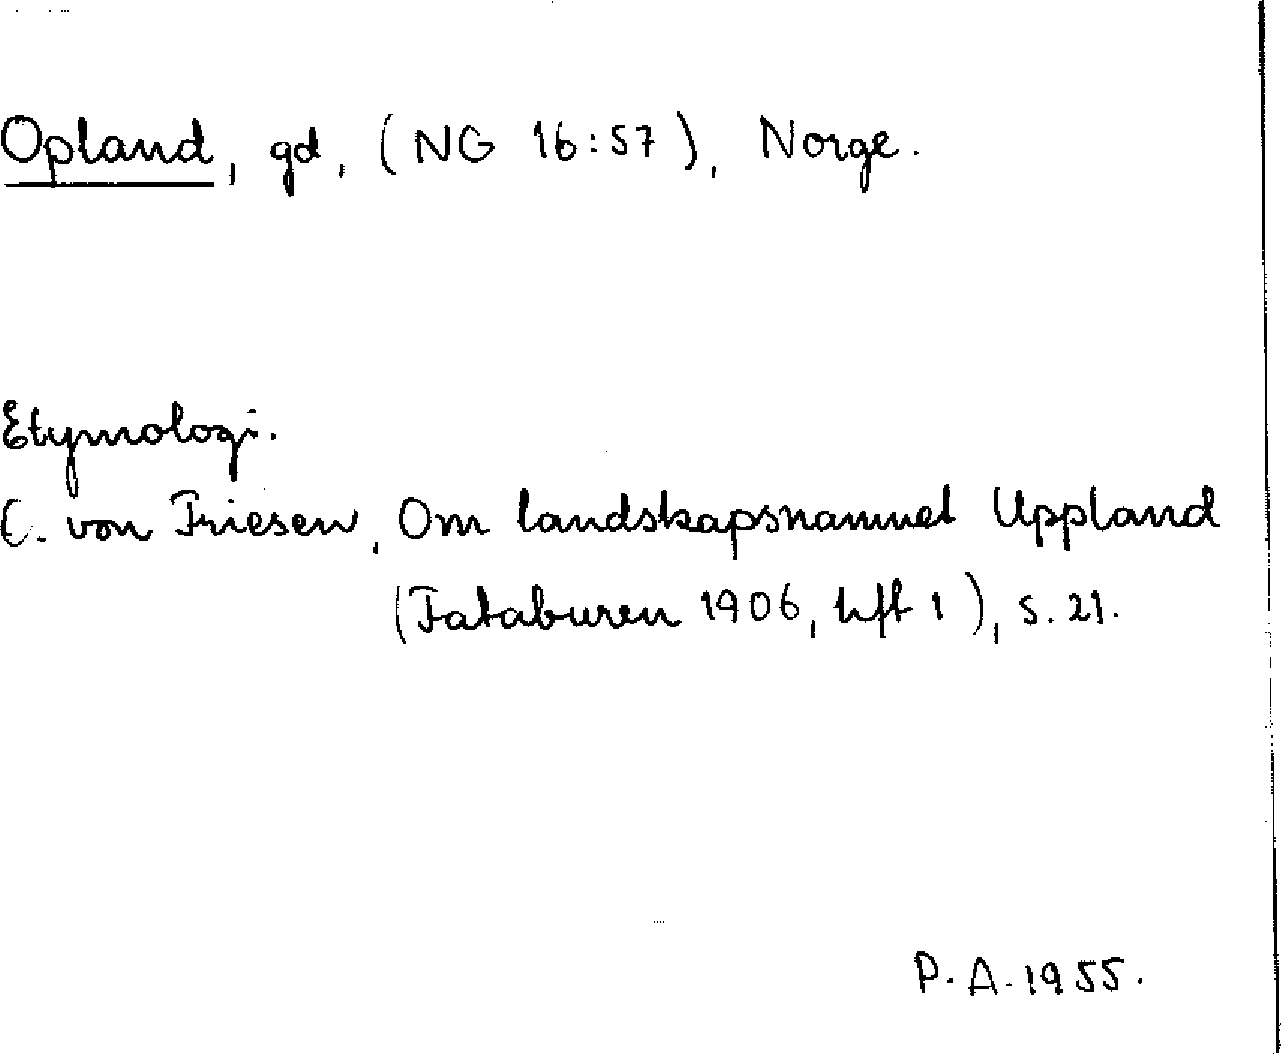 Opland, gd, (NG 16:57), Norge.
Etymologi.
von Friesen, Om landskapsnamnet Uppland
(Fataburen 1906, hft 1), s. 21.
P. A. 1955.